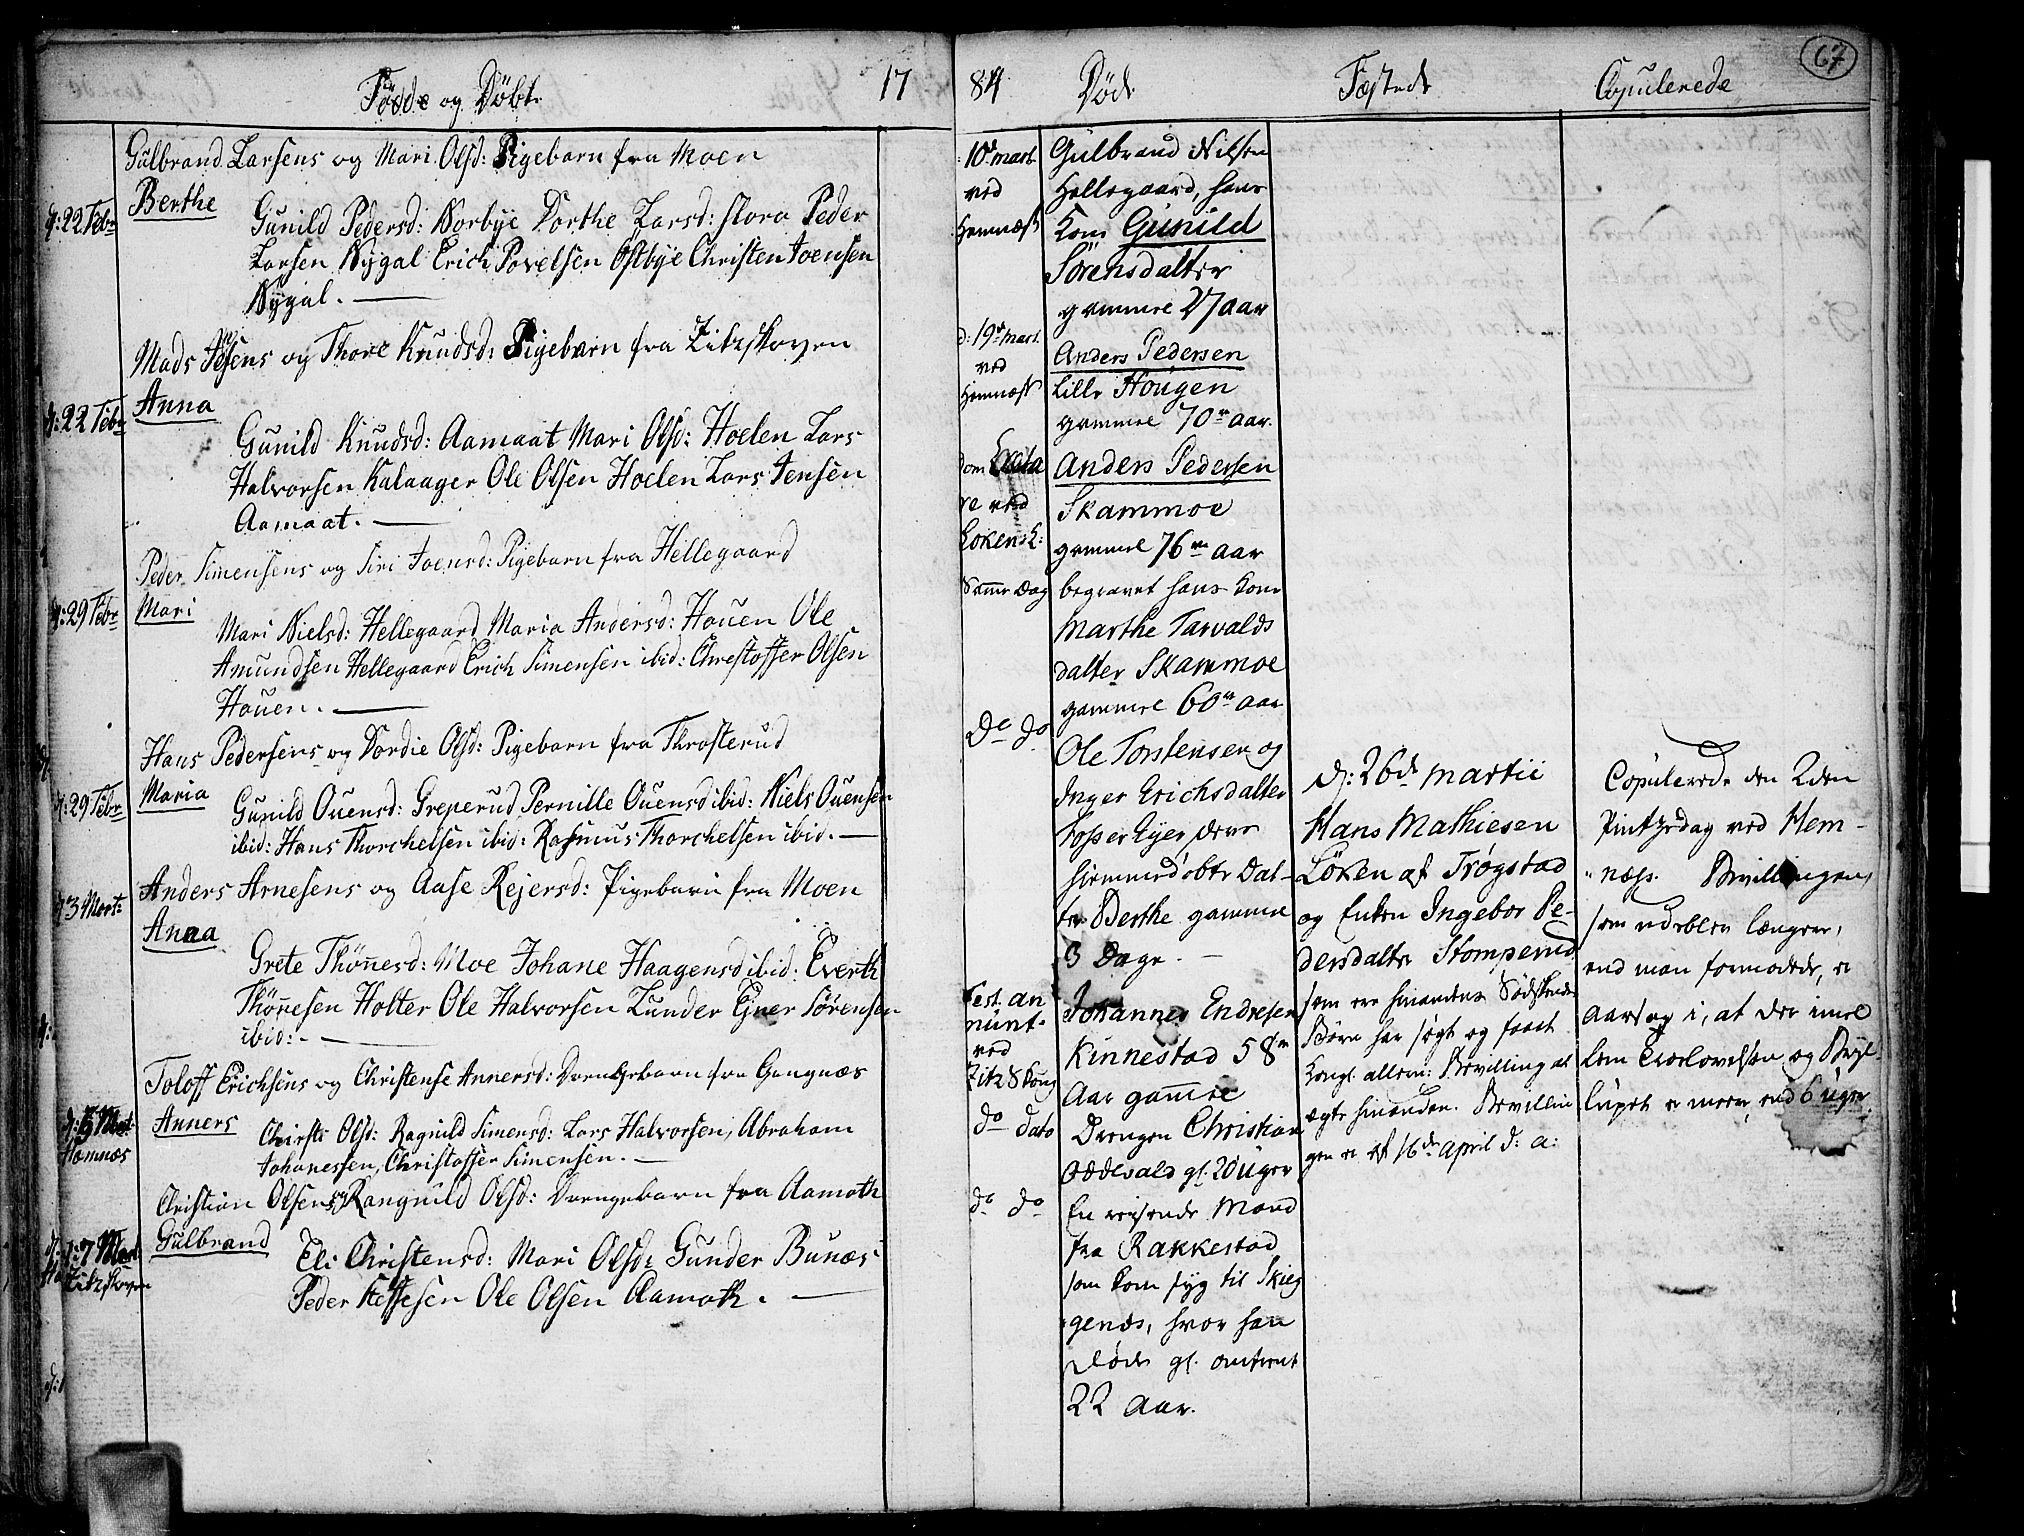 67
Fødde og Døbte 17
Gulbrand Larsens og Mari Olsd: Pigebarn fra Moen
d: 22 Febr Berthe
Gunild Pedersd: Norbye Dorthe Larsd: Flora Peder
Larsen Nygal Erich Povelsen Östbye Christen Joensen
Nygal.
Mads Jensens og Thore Knudsd: Pigebarn fra Zitzskoven
d: 22 Febr Anna
Gunild Knudsd: Aamaat Mari Olsd: Hoelen Lars
Halvorsen Kalaager Ole Olsen Hoelen Lars Jensen
Aamaat.
Peder Simensens og Siri Joensd: Pigebarn fra Hellegaard
d: 29 Febr Mari
Mari Nielsd: Hellegaard Maria Andersd: Houen Ole
Amundsen Hellegaard Erich Simensen ibid: Christoffer Olsen
Houen.
Hans Pedersens og Dordie Olsd: Pigebarn fra Throsterud
d: 29 Febr Maria
Gunild Ouensd: Greperud Pernille Ouensd ibid: Niels Ouensen
ibid: Hans Thorchelsen ibid: Rasmus Thorchelsen ibid.
Anders Arnesens og Aase Rejersd: Pigebarn fra Moen
d: 3 Mart: Anna
Grete Thönnesd: Moe Johane Haagensd ibid: Everth
Thönnesen Holter Ole Halvorsen Lunder Ejner Sörensen
ibid:
Toloff Erichsens og Christense Annersd: Drengebarn fra Gangnæs
Hamnæs Anners
Christi Olsd: Ragnild Simensd: Lars Halvorsen, Abraham
Johanessen, Christoffer Simensen.
Christian Olsens og Rangnild Olsd: Drengebarn fra Aamoth
d: 7 Mart Zitzskoven Gulbrand
Eli Christensd: Mari Olsd: Gunder Bunæs
Peder Olsen Ole Olsen Aamoth.
84 Døde
10d mart. ved Hemnæss
Gulbrand Nilsen
Hellegaard, hans
Kone Gunild
Sörensdatter
gammel 27 aar
d: 19d mart. ved Hemnæss
Anders Pedersen
Lille Hougen
gammel 70 aar.
dom Exita
re ved
Løken K:
Anders Pedersen
Skammoe
gammel 76 aar
Samme Dag begravet hans Kone
Marthe Tarvalds
datter Skammoe
gammel 60 aar
do do
Ole Torstensen og
Inger Erichsdatter
Fosser Eyer deres
hiemmedøbte Dat-
ter Berthe gammel
3 Dage.
Fest. an
nunt.
ved
Zitz Skoug
Johannes Endresen
Kinnestad 58
Aar gammel
do dato
Drengen Christian
Oddevald gl. 20 uger
do do
En reisende Mand
fra Rakkestad
som kom syg til Skieg
genes, hvor han
døde gl. omtrent
22 aar.
Fæstede
d: 26d martii
Hans Mathiesen
Löken af Trøgstad
og Enken Ingebor Pe-
dersdatter Stomperud
som ere hinandens Södskende
Børn har søgt og faaet
Kongl. allern: Bevilling at
ægte hinanden. Bevillin
gen er af 16de april d: a:
Copulerede
Copulerede den 2den
Pintzedag ved Hem-
næss. Bevillingen,
som udeblev længere,
end man formodede, er
aarsag i, at der imel
lem Troelovelsen og Bryl-
lupet er meere end 6 uger